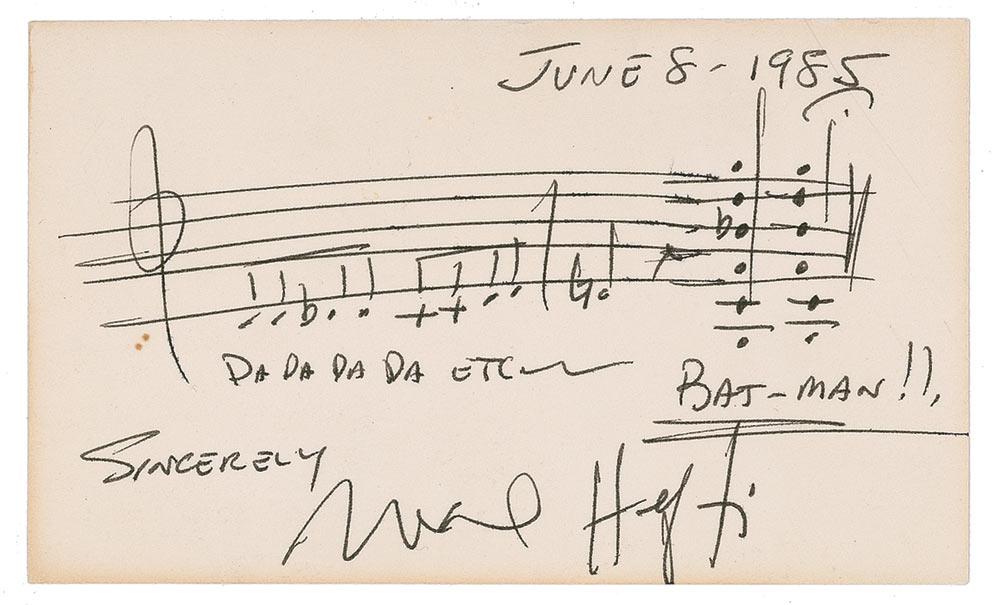 JUNE 8 - 1985
DA DA DA DA ETC
BAT-MAN!!,
SINCERELY
Neal Hefti